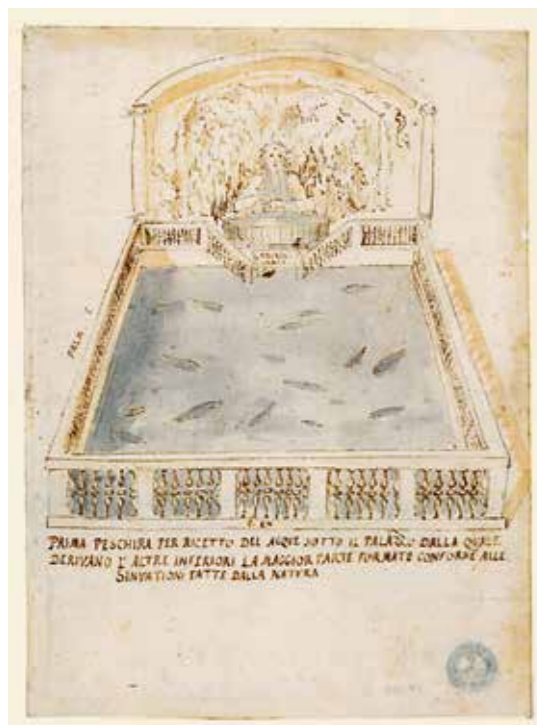 PRIMA PESCHIRA PER RICETTO DEL ACQUE SOTTO IL PALAZZO DALLA QUALE
DERIVANO L'ALTRE INFERIORI LA MAGGIOR PARTE FORMATE CONFORME ALLE
SINVATIONI FATTE DALLA NATVRA